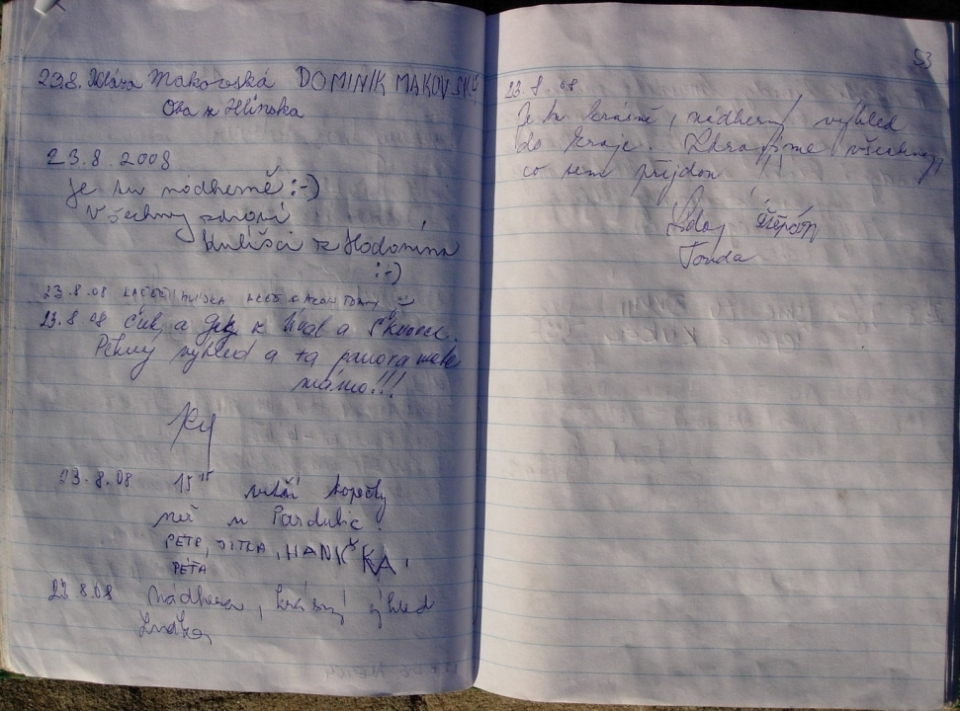 23.8. Klára Makovská DOMINIK MAKOVSKÝ
Oba z Hlinska
23.8.2008
Je tu nádherně :-)
Všechny zdraví
Kulíšci z Hodonína
:-)
23.8.08
23.8 08 Čuk a Gek z hval a Škvorec.
Pěkný výhled a ta panoramata
máňo!!!
23.8.08 15 15 větší kopečky
než u Pardubic.
PETR, JITKA, HANIČKA,
PÉŤA
23.8.08 Nádhera, krásný výhled
53
23.8.08
Je tu krásně, nádherný výhled
do kraje. Zdravíme všechny,
co sem přijdou!
Štěpán
Tonda